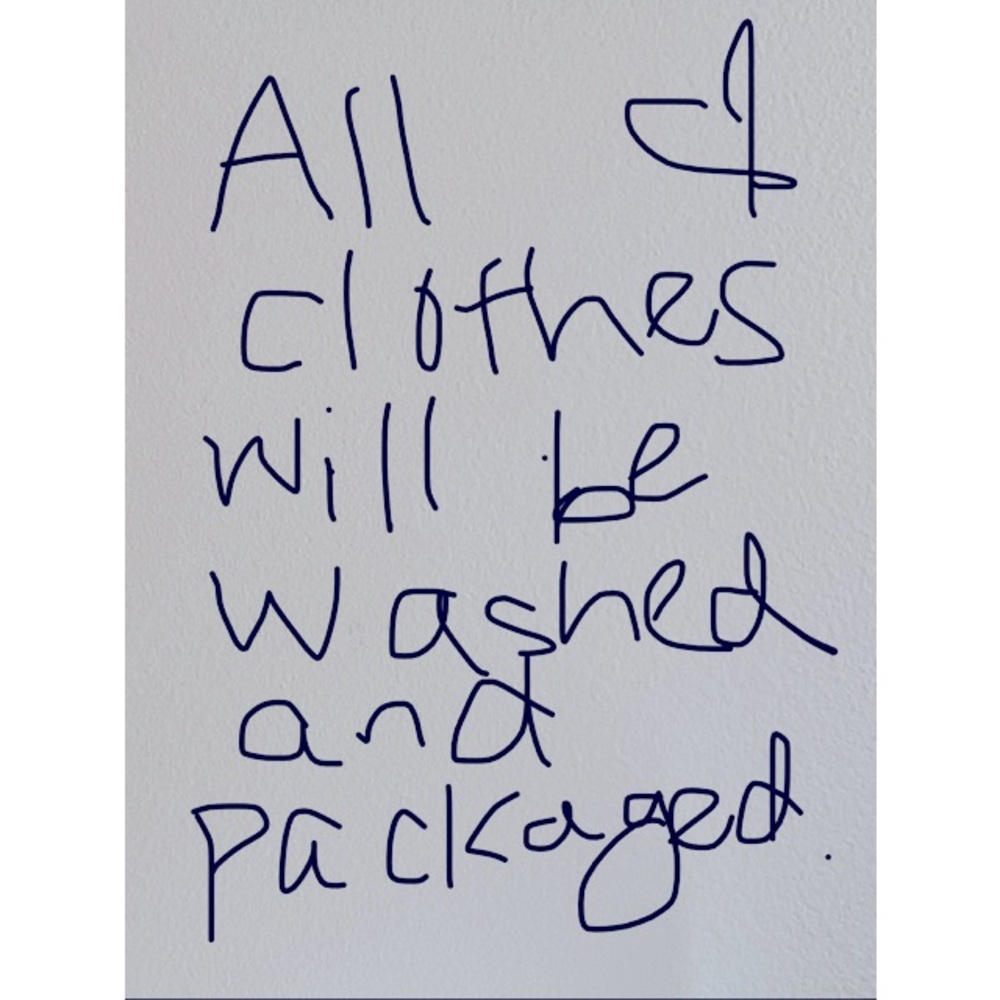 All
clothes
will be
washed
and
packaged.